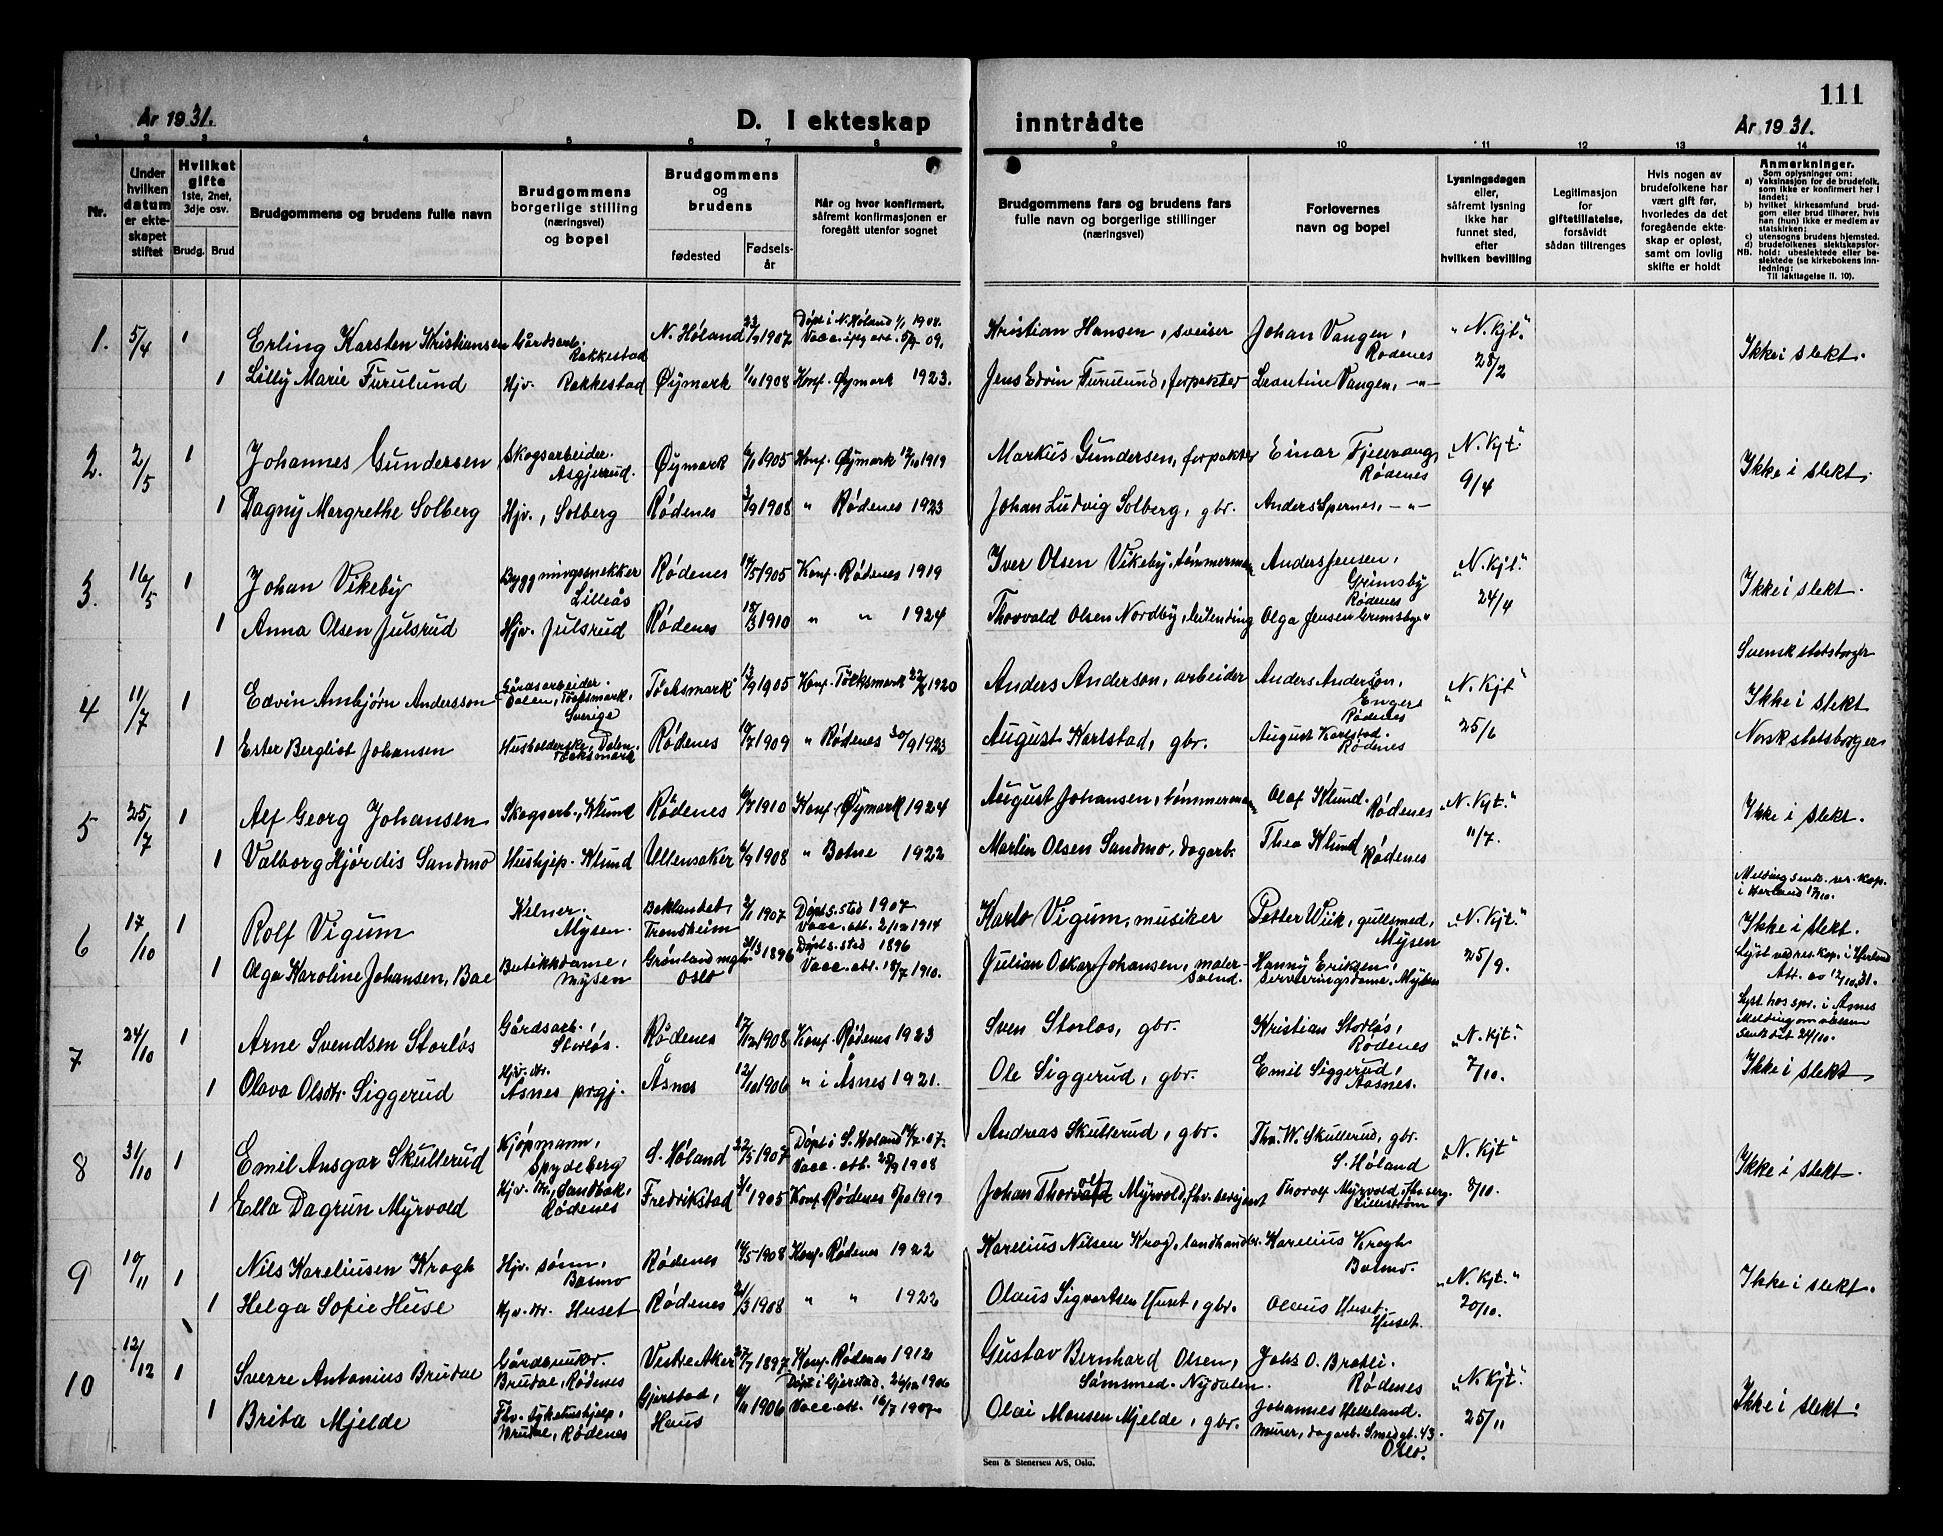 111
År 1931.
D. I ekteskap
inntrådte
År 1931.
1 2 3 4 5 6 7 8
9 10 11 12 13 14
Nr.
Under hvilken datum er ekteskapet stiftet
Hvilket gifte
1ste, 2net, 3dje osv.
Brudg. Brud
Brudgommens og brudens fulle navn
Brudgommens borgerlige stilling (næringsvei) og bopel
Brudgommens og brudens
fødested
Fødsels-år
Når og hvor konfirmert, såfremt konfirmasjonen er foregått utenfor sognet
Brudgommens fars og brudens fars fulle navn og borgerlige stillinger (næringsvei)
Forlovernes navn og bopel
Lysningsdagen eller, såfremt lysning ikke har funnet sted, efter hvilken bevilling
Legitimasjon for giftetillatelse, forsåvidt sådan tiltrenges
Hvis nogen av brudefolkene har vært gift før, hvorledes da det foregående ekteskap er opløst, samt om lovlig skifte er holdt
Anmerkninger.
Som oplysninger om:
a) Vaksinasjon for de brudefolk, som ikke er konfirmert her i landet:
b) hvilket kirkesamfund brudgom eller brud tilhører, hvis han (hun) ikke er medlem av statskirken:
c) utensogns brudens hjemsted.
d) brudefolkenes slektskapsforhold: ubeslektede eller beslektede (se kirkebokens innledning:
NB.
Til iakttagelse II. 10).
1. 5/4 1 Erling Karsten Kristiansen Gårdsarb. Rakkestad N. Høland 23/9 1907 Døpt i N. Høland 1/1 1908. Vacc. 09. Kristian Hansen, sveiser Johan Vangen, Rødenes "N. Kjt." 28/2 Ikke i slekt.
1 Lilly Marie Furulund Hjv. Rakkestad Øymark 1908 Konf. Øymark 1923. Jens Edvin Furulund, forpakter Leontine Vangen, -"-
2. 2/5 1 Johannes Gundersen Skogsarbeider. Asgjerrud. Øymark 1905 Konf. Øymark 12/10 1919 Markus Gundersen, forpakter Einar Fjellvang, Rødenes "N. Kjt." 9/4 Ikke i slekt.
1 Dagny Margrethe Solberg Hjv., Solberg Rødenes 3/9 1908 " Rødenes 1923 Johan Ludvig Solberg, gbr. Anders Spernes, -"-
3. 16/5 1 Johan Vikeby Byggningssnekker Lilleås Rødenes 1905 Konf. Rødenes 1919 Iver Olsen Vikeby, tømmermann Anders Jensen, Grimsby Rødenes "N. Kjt." 24/4 Ikke i slekt.
1 Anna Olsen Julsrud Hjv. Julsrud Rødenes 18/3 1910 " " 1924 Thorvald Olsen Nordby, leilending Olga Jensen Grimsby "
Svensk statsborger
4 11/7 1 Edvin Ambjørn Andersson Gårdsarbeider. Dalen, Töcksmark, Sverige Töcksmark 13/9 1905 Konf. Töcksmark 1920 Anders Anderson, arbeider Anders Anderson, Enger, Rødenes "N. Kjt" 25/6 Ikke i slekt
1 Ester Bergliot Johansen Husholderske, Dalen, Töcksmark Rødenes 10/7 1909 " Rødenes 30/9 1923 August Karlstad, gbr. August Karlstad. Rødenes Norsk statsborger
5 25/7 1 Alf Georg Johansen Skogsarb., Klund Rødenes 1910 Konf. Øymark 1924 August Johansen, tømmermann Olaf Klund. Rødenes "N. Kjt." 11/7. Ikke i slekt.
1 Valborg Hjørdis Sandmo Hushjelp. Klund Ullensaker 1908 " Botne 1922 Martin Olsen Sandmo, dagarb. Thea Klund Rødenes
Melding sendt res. kap. i Herland 17/10.
6 17/10 1 Rolf Vigum Kelner. Mysen. Baklandet Trondheim 2/1 1907 Døpt s. sted 1907. Vacc. att. 2/12 1914 Karlo Vigum, musiker Petter Wiik, gullsmed, Mysen "N. Kjt." 25/9. Ikke i slekt.
1 Olga Karoline Johansen, Boe Butikkdame, Mysen Grønland mgh. Oslo 31/3 1896 Døpt s. sted 1896 Vacc. att. 18/7 1910. Julian Oskar Johansen, malersvend. Hanny Eriksen, serveringsdame, Mysen Lyst ved res. kap. i Herland Att. av 12/10.31.
Lyst hos spr. i Åsnes Melding om vielsen sendt dit 24/10.
7 24/10 1 Arne Svendsen Storløs Gårdsarb., Storløs. Rødenes 17/12 1908 Konf. Rødenes 1923 Sven Storløs, gbr. Kristian Storløs, Rødenes "N. Kjt." 7/10. Ikke i slekt
1 Olava Olsdtr. Siggerud Hjv. dtr. Åsnes prgj. Åsnes 12/10 1906 " i Åsnes 1921. Ole Siggerud, gbr. Emil Siggerud, Aasnes.
8 31/10 1 Emil Ansgar Skullerud Kjøpmann, Spydeberg S. Høland 22/5 1907 Døpt i S. Høland 07. Vacc. att. 28/9 1908 Andreas Skullerud, gbr. Tha. W. Skullerud, gbr. S. Høland "N. Kjt" 8/10. Ikke i slekt.
1 Ella Dagrun Myrvold Hjv. dtr., Sandbæk, Rødenes Fredrikstad 1905 Konf. Rødenes 1919 Johan Thorolf Myrvold, fhv. sersjant Thorolf Myrvold, Lillestrøm
9 10/11 1 Nils Kareliusen Krogh Hjv. sønn, Basmo Rødenes 1908 Konf. Rødenes 1922 Karelius Nilsen Krog, landhandler. Karelius Krogh Basmo. "N. Kjt." 20/10. Ikke i slekt.
1 Helga Sofie Huse Hjv. dtr. Huset Rødenes 1908 " " 1922 Olaus Sigvartsen Huset, gbr. Olaus Huset. Huset.
10 12/12 1 Sverre Antonius Brudal Gårdbruker. Brudal, Rødenes Vestre Aker 27/7 1897 Konf. Rødenes 1912 Gustav Bernhard Olsen, Sømsmed. Nydalen. Johs O. Bratli. Rødenes "N. Kjt." 25/11 Ikke i slekt.
1 Brita Mjelde Fhv. sykehushjelp, Brudal, Rødenes Gjerstad, Haus 1906 Døpt i Gjerstad. 26/12 1906 Vacc. att. 16/7 1907 Olai Monsen Mjelde, gbr. Johannes Helleland. murer, dagarb. Smedgt. 43. Oslo.
Sem & Stenersen A/S, Oslo.